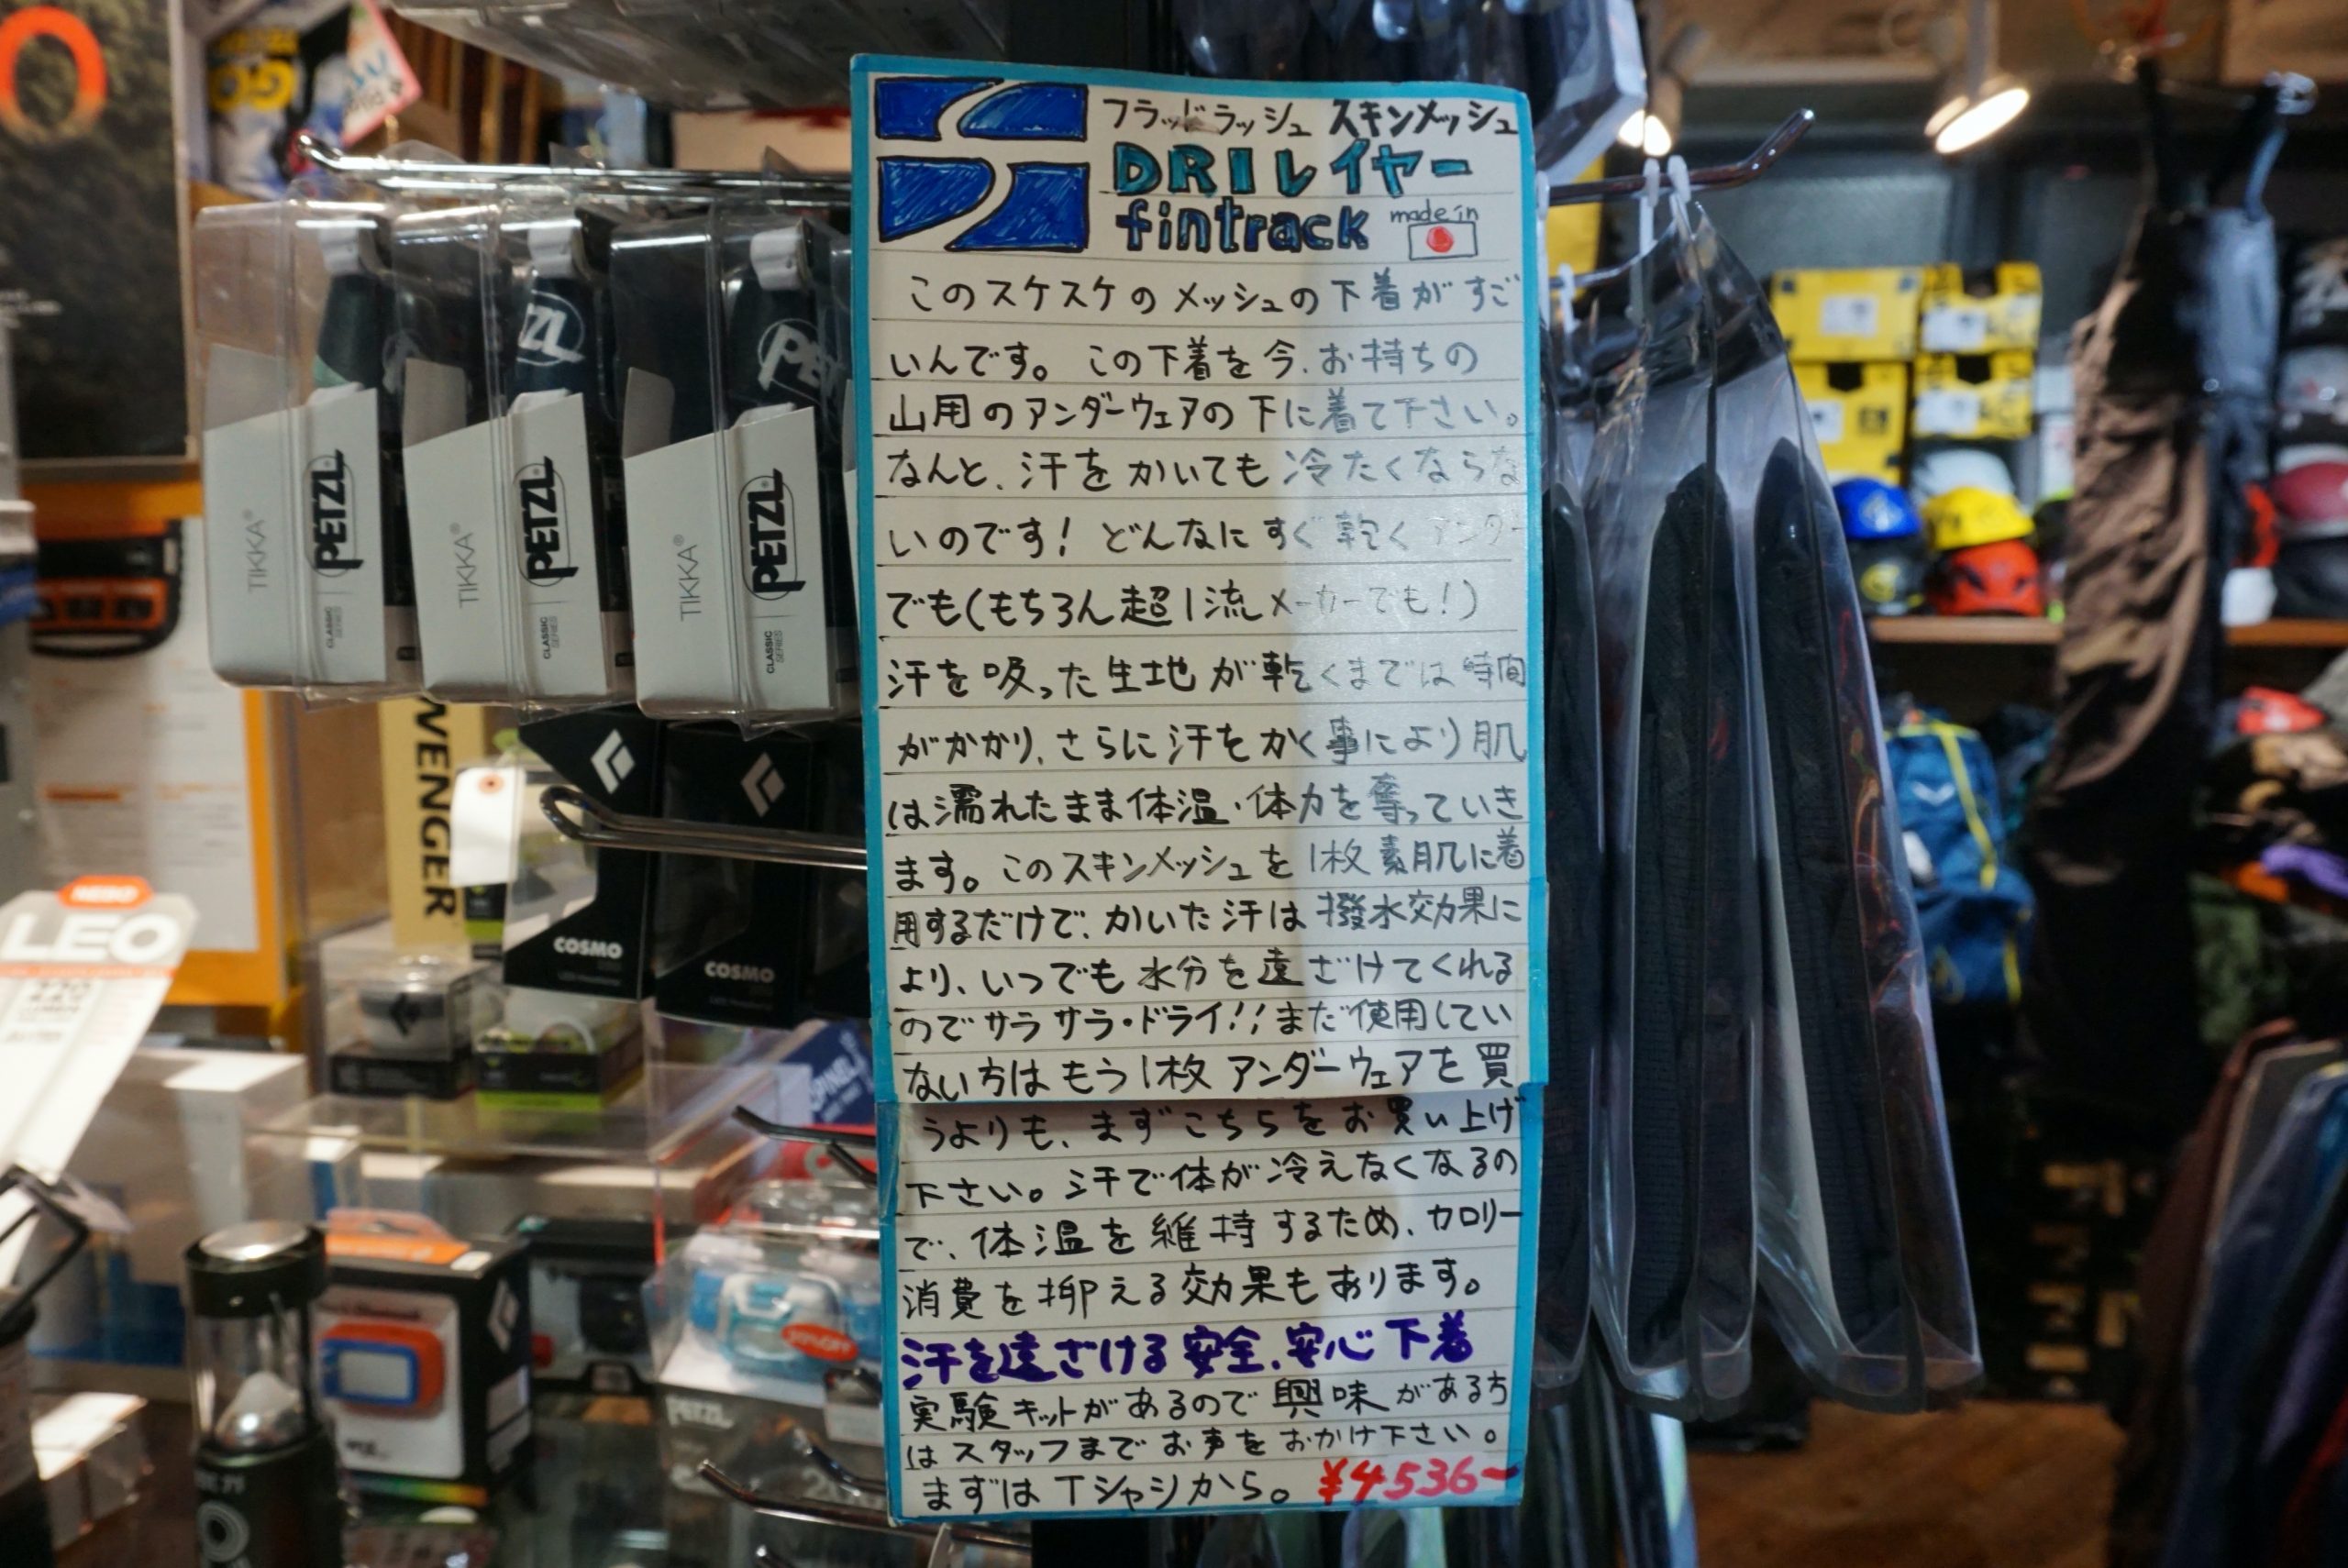 フラッドラッシュ スキンメッシュ
DRIレイヤー
fintrack made in
このスケスケのメッシュの下着がすご
いんです。この下着を今、お持ちの
山用のアンダーウェアの下に着て下さい。
なんと、汗をかいても冷たくならな
いのです! どんなにすぐ乾くアンダー
でも(もちろん超1流メーカーでも!)
汗を吸った生地が乾くまでは時間
がかかり、さらに汗をかく事により肌
は濡れたまま体温・体力を奪っていき
ます。このスキンメッシュを1枚素肌に着
用するだけで、かいた汗は撥水効果に
より、いつでも水分を遠ざけてくれる
のでサラサラ・ドライ!!まだ使用してい
ない方はもう1枚アンダーウェアを買
うよりも、まずこちらをお買い上げ
下さい。汗で体が冷えなくなるの
で、体温を維持するため、カロリー
消費を抑える効果もあります。
汗を遠ざける安全、安心下着
実験キットがあるので興味がある方
はスタッフまでお声をおかけ下さい。
まずはTシャツから。¥4536-
TIKKA® PETZL CLASSIC SERIES
TIKKA® PETZL CLASSIC SERIES
TIKKA® PETZL CLASSIC SERIES
WENGER
COSMO
COSMO
NEBO
LEO
PETZL